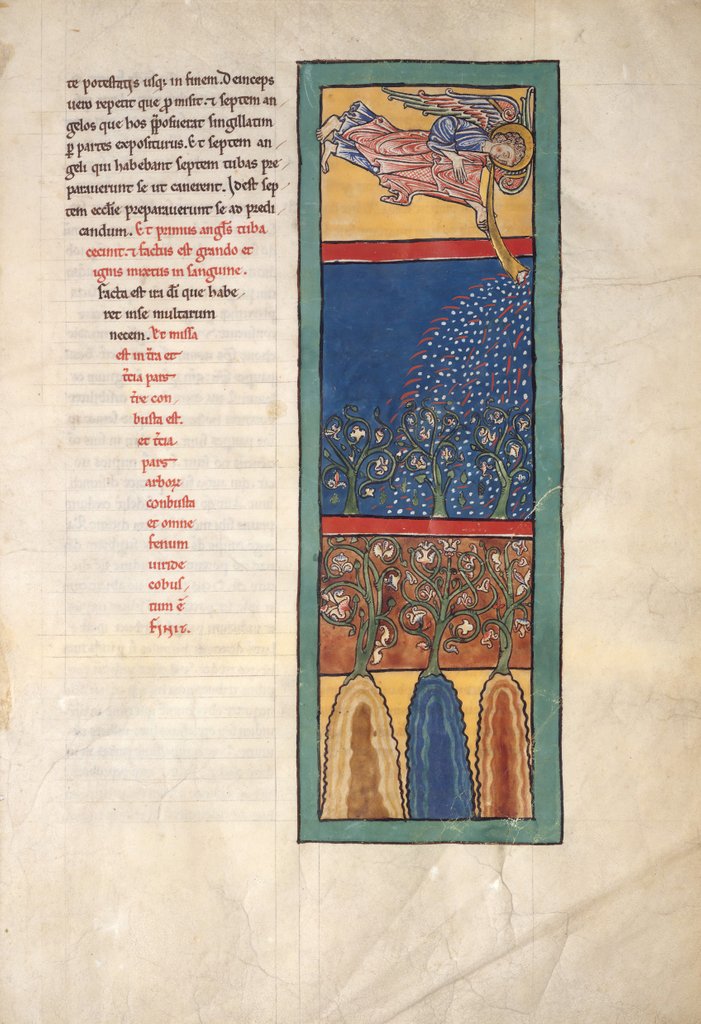 te potestatis usq; in finem. Deinceps
uero repetit que p̄misit. ⁊ septem an
gelos que hos p̄posuerat singillatim
ꝑ partes expositurus. Et septem an
geli qui habebant septem tubas pre
parauerunt se ut canerent. Idest sep
tem ecclīe preparauerunt se ad predi
candum. Et primus angl̄s tuba
cecinit. ⁊ factus est grando et
ignis mixtus in sanguine.
Facta est ira dī que habe
ret inse multarum
necem. Et missa
est in t̄ra et
t̄cia pars
t̄re con
busta est.
et t̄cia
pars
arborꝝ
conbusta
et omne
fenum
uiride
cobus
tum ē
FINIT.